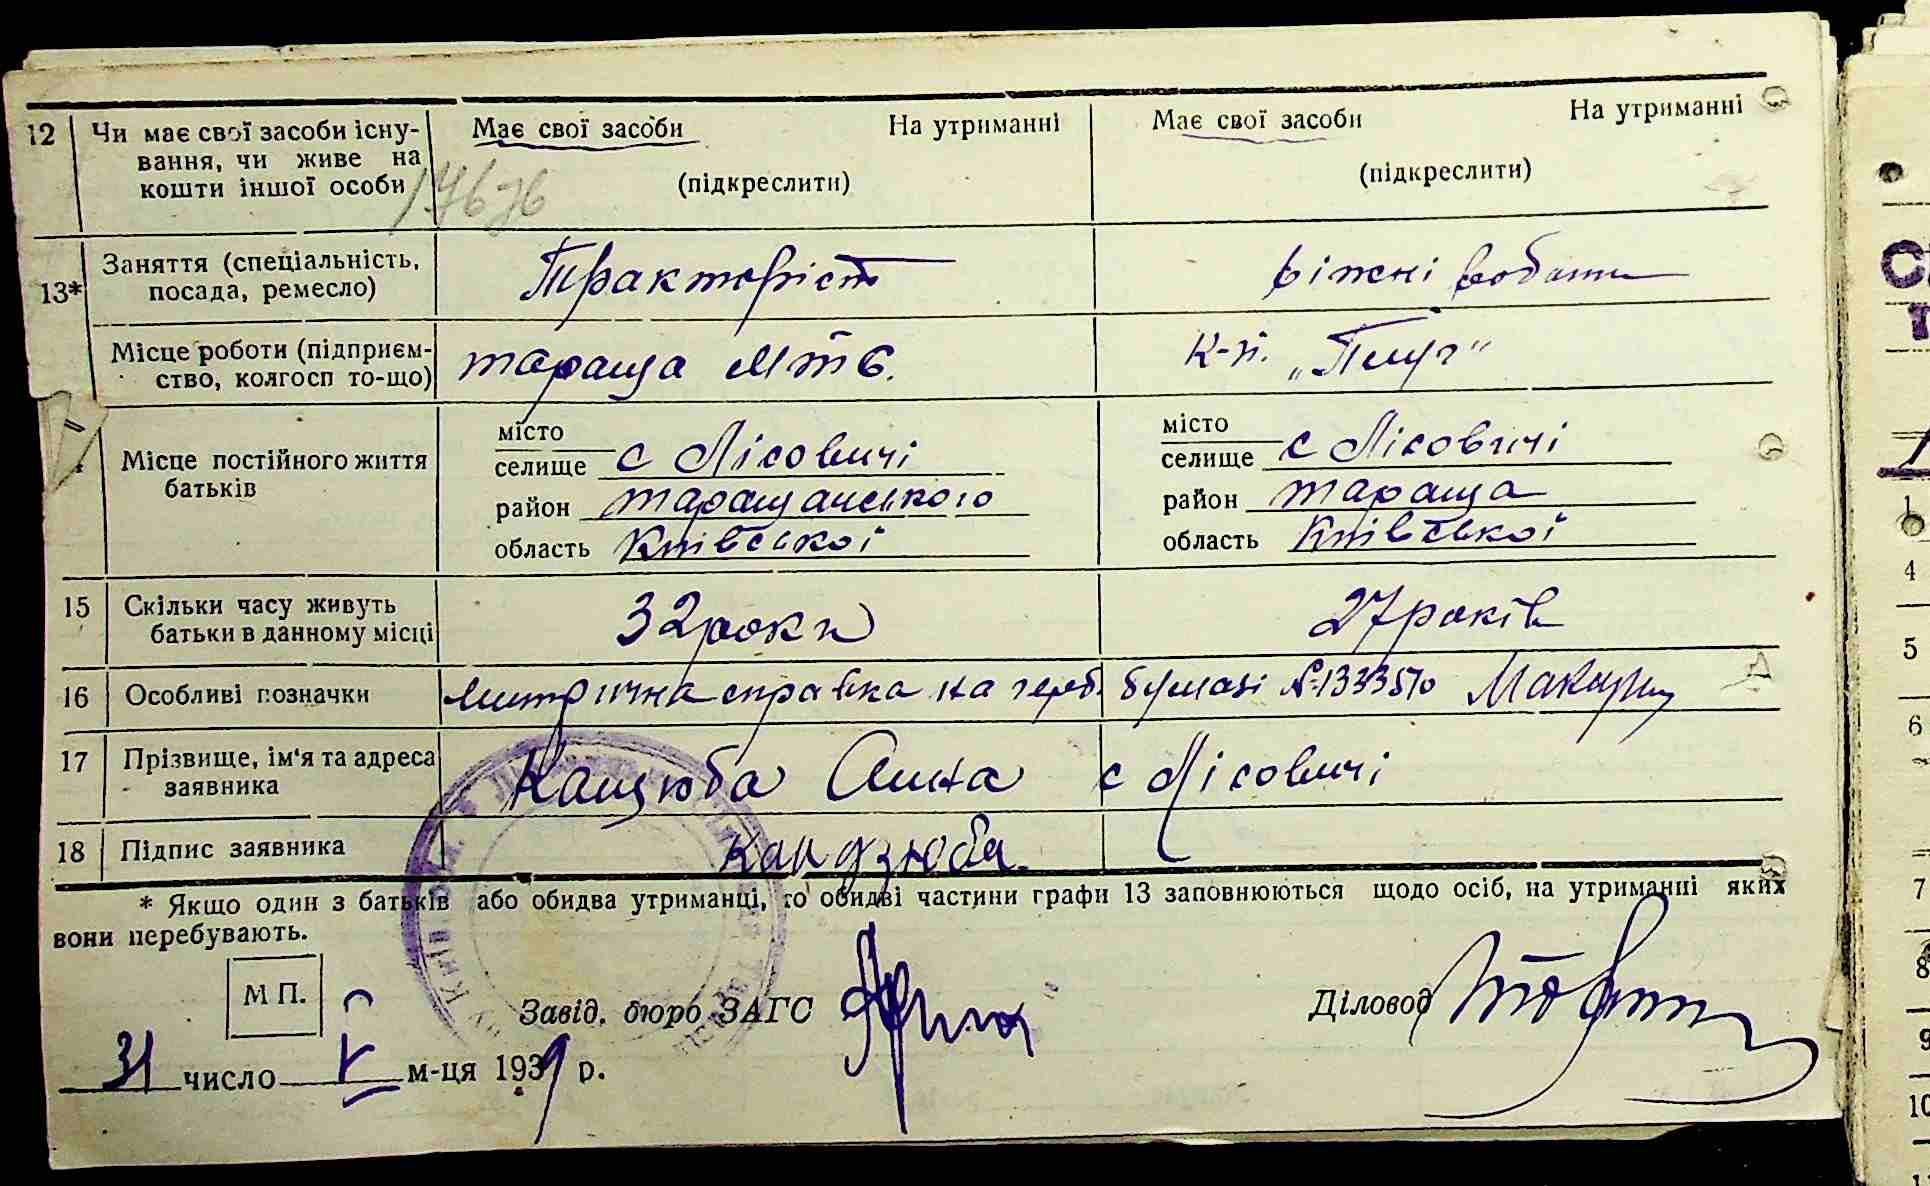 12 Чи має свої засоби існу- Має свої засоби На утриманні Має свої засоби На утриманні
вання, чи живе на
кошти іншої особи (підкреслити) (підкреслити)
13* Заняття (спеціальність, Тракторіст ріжні роботи
посада, ремесло)
Місце роботи (підприєм- тараща МТС. к-п. „Плуг“
ство, колгосп то-що)
Місце постійного життя місто місто
батьків селище с Лісовичі селище с Лісовичі
район таращанського район тараща
область Київської область Київської
15 Скільки часу живуть 32 роки 27 років
батьки в данному місці
16 Особливі позначки митрична справка на герб. бумазі № 1333570
17 Прізвище, ім'я та адреса Кацюба Анна с Лісовичі
заявника
18 Підпис заявника Кандзюба.
* Якщо один з батьків або обидва утриманці, то обидві частини графи 13 заповнюються щодо осіб, на утриманні яких
вони перебувають.
М П.
Завід. бюро ЗАГС Діловод
31 число V м-ця 1939 р.
4
5
6
7
8
9
10